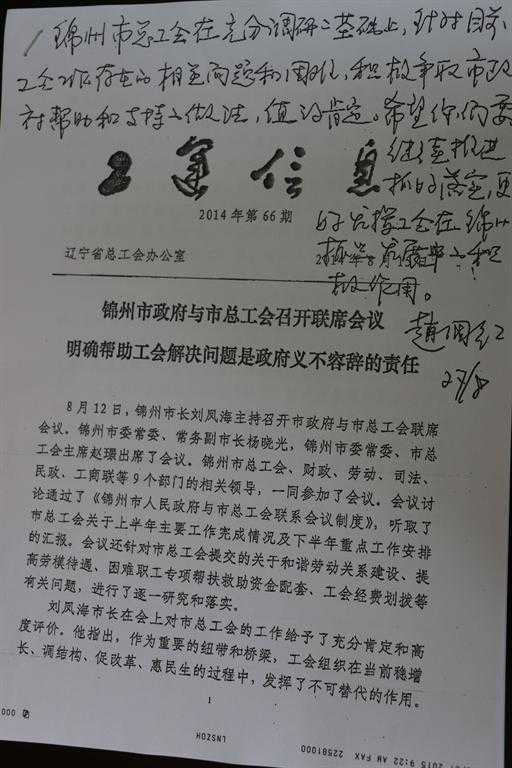 锦州市总工会在充分调研之基础上，针对目前
工会工作存在的相关问题和困难，积极争取市政
府帮助和支持之做法，值得肯定。希望你们要
继续推进
抓好落实，更
好发挥工会在锦州
积
极作用。
工运信息
2014年第66期
辽宁省总工会办公室
锦州市政府与市总工会召开联席会议
明确帮助工会解决问题是政府义不容辞的责任
8月12日，锦州市长刘凤海主持召开市政府与市总工会联席
会议。锦州市委常委、常务副市长杨晓光，锦州市委常委、市总
工会主席赵璟出席了会议。锦州市总工会、财政、劳动、司法、
民政、工商联等9个部门的相关领导，一同参加了会议。会议讨
论通过了《锦州市人民政府与市总工会联系会议制度》，听取了
市总工会关于上半年主要工作完成情况及下半年重点工作安排
的汇报。会议还针对市总工会提交的关于和谐劳动关系建设、提
高劳模待遇、困难职工专项帮扶救助资金配套、工会经费划拨等
有关问题，进行了逐一研究和落实。
刘凤海市长在会上对市总工会的工作给予了充分肯定和高
度评价。他指出，作为重要的纽带和桥梁，工会组织在当前稳增
长、调结构、促改革、惠民生的过程中，发挥了不可替代的作用。
1
2015 9:22 AM FAX 22581000
LNSZGH
000